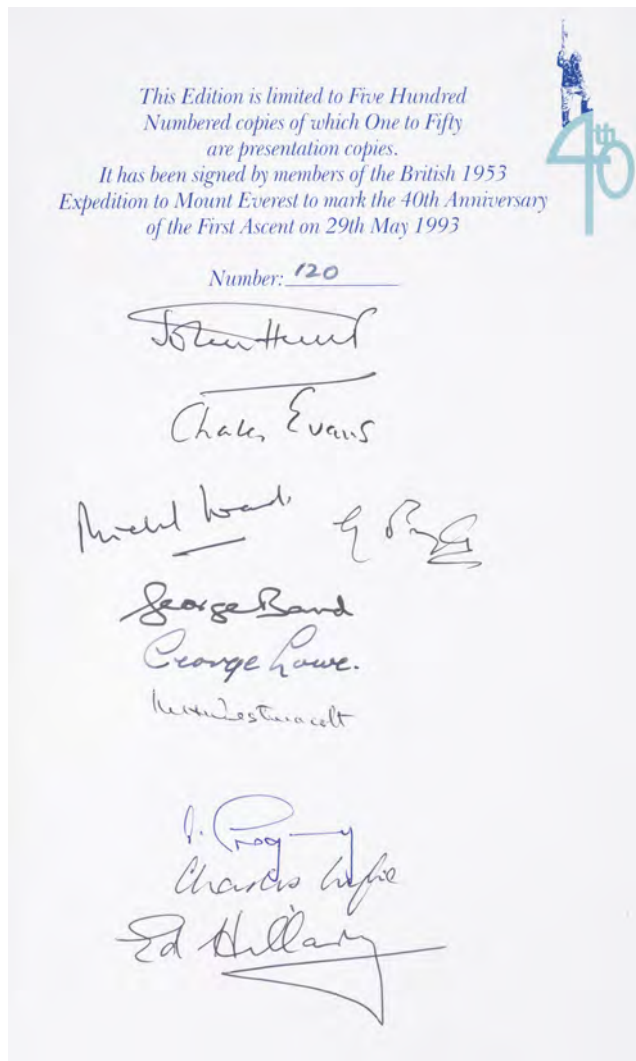 This Edition is limited to Five Hundred
Numbered copies of which One to Fifty
are presentation copies.
It has been signed by members of the British 1953
Expedition to Mount Everest to mark the 40th Anniversary
of the First Ascent on 29th May 1993
40th
Number: 120
John Hunt
Charles Evans
Michael Ward
George Band
George Lowe.
Westmacott
Charles Wylie
Ed Hillary